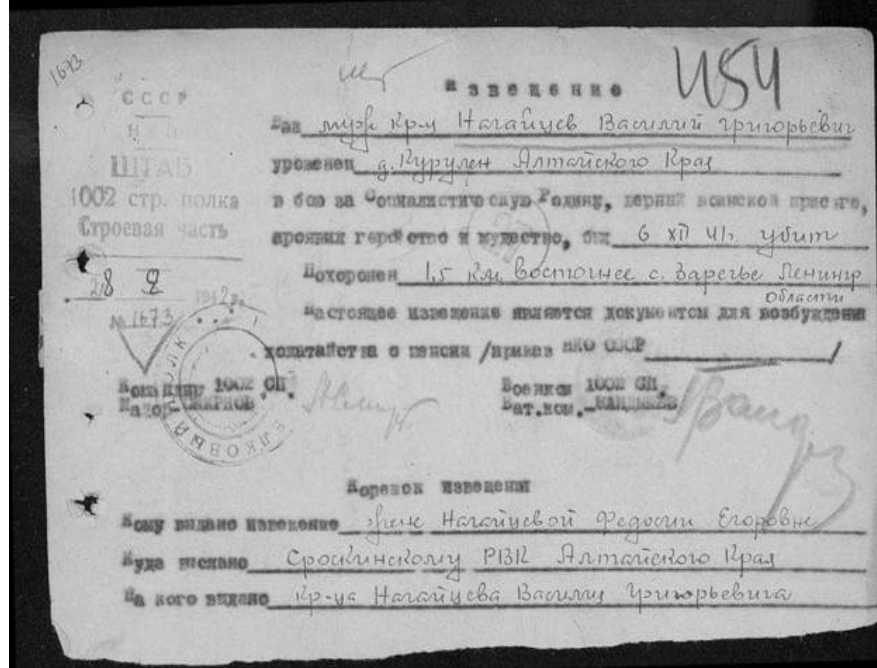 1673
СССР
НКО
ШТАБ
1002 стр. полка
Строевая часть
28 2 1942г.
№ 1673
454
Извещение
Ваш муж кр-ц Нагайцев Василий Григорьевич
уроженец д. Курулен Алтайского Края
в бою за Социалистическую Родину, верный воинской присяге,
проявив геройство и мужество, был 6 XII 41г. убит
Похоронен 1,5 км восточнее с. Заречье Ленингр
области
Настоящее извещение является документом для возбуждения
ходатайства о пенсии /приказ НКО СССР /
Командир 1002 СП.
Майор СМИРНОВ
Военком 1002 СП.
Бат.ком.
Корешок извещения
Кому выдано извещение жене Нагайцевой Федосии Егоровне
Куда выслано Сроскинскому РВК Алтайского Края
На кого выдано кр-ца Нагайцева Василия Григорьевича